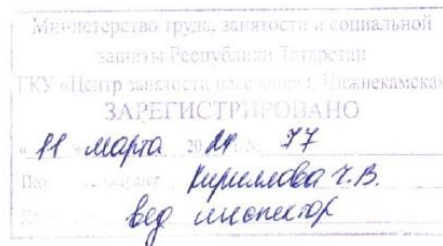 Министерство труда, занятости и социальной
защиты Республики Татарстан
ГКУ «Центр занятости населения г. Нижнекамска»
ЗАРЕГИСТРИРОВАНО
« 11 » марта 20 21 № 97
Кириллова Ч.В.
вед инспектор